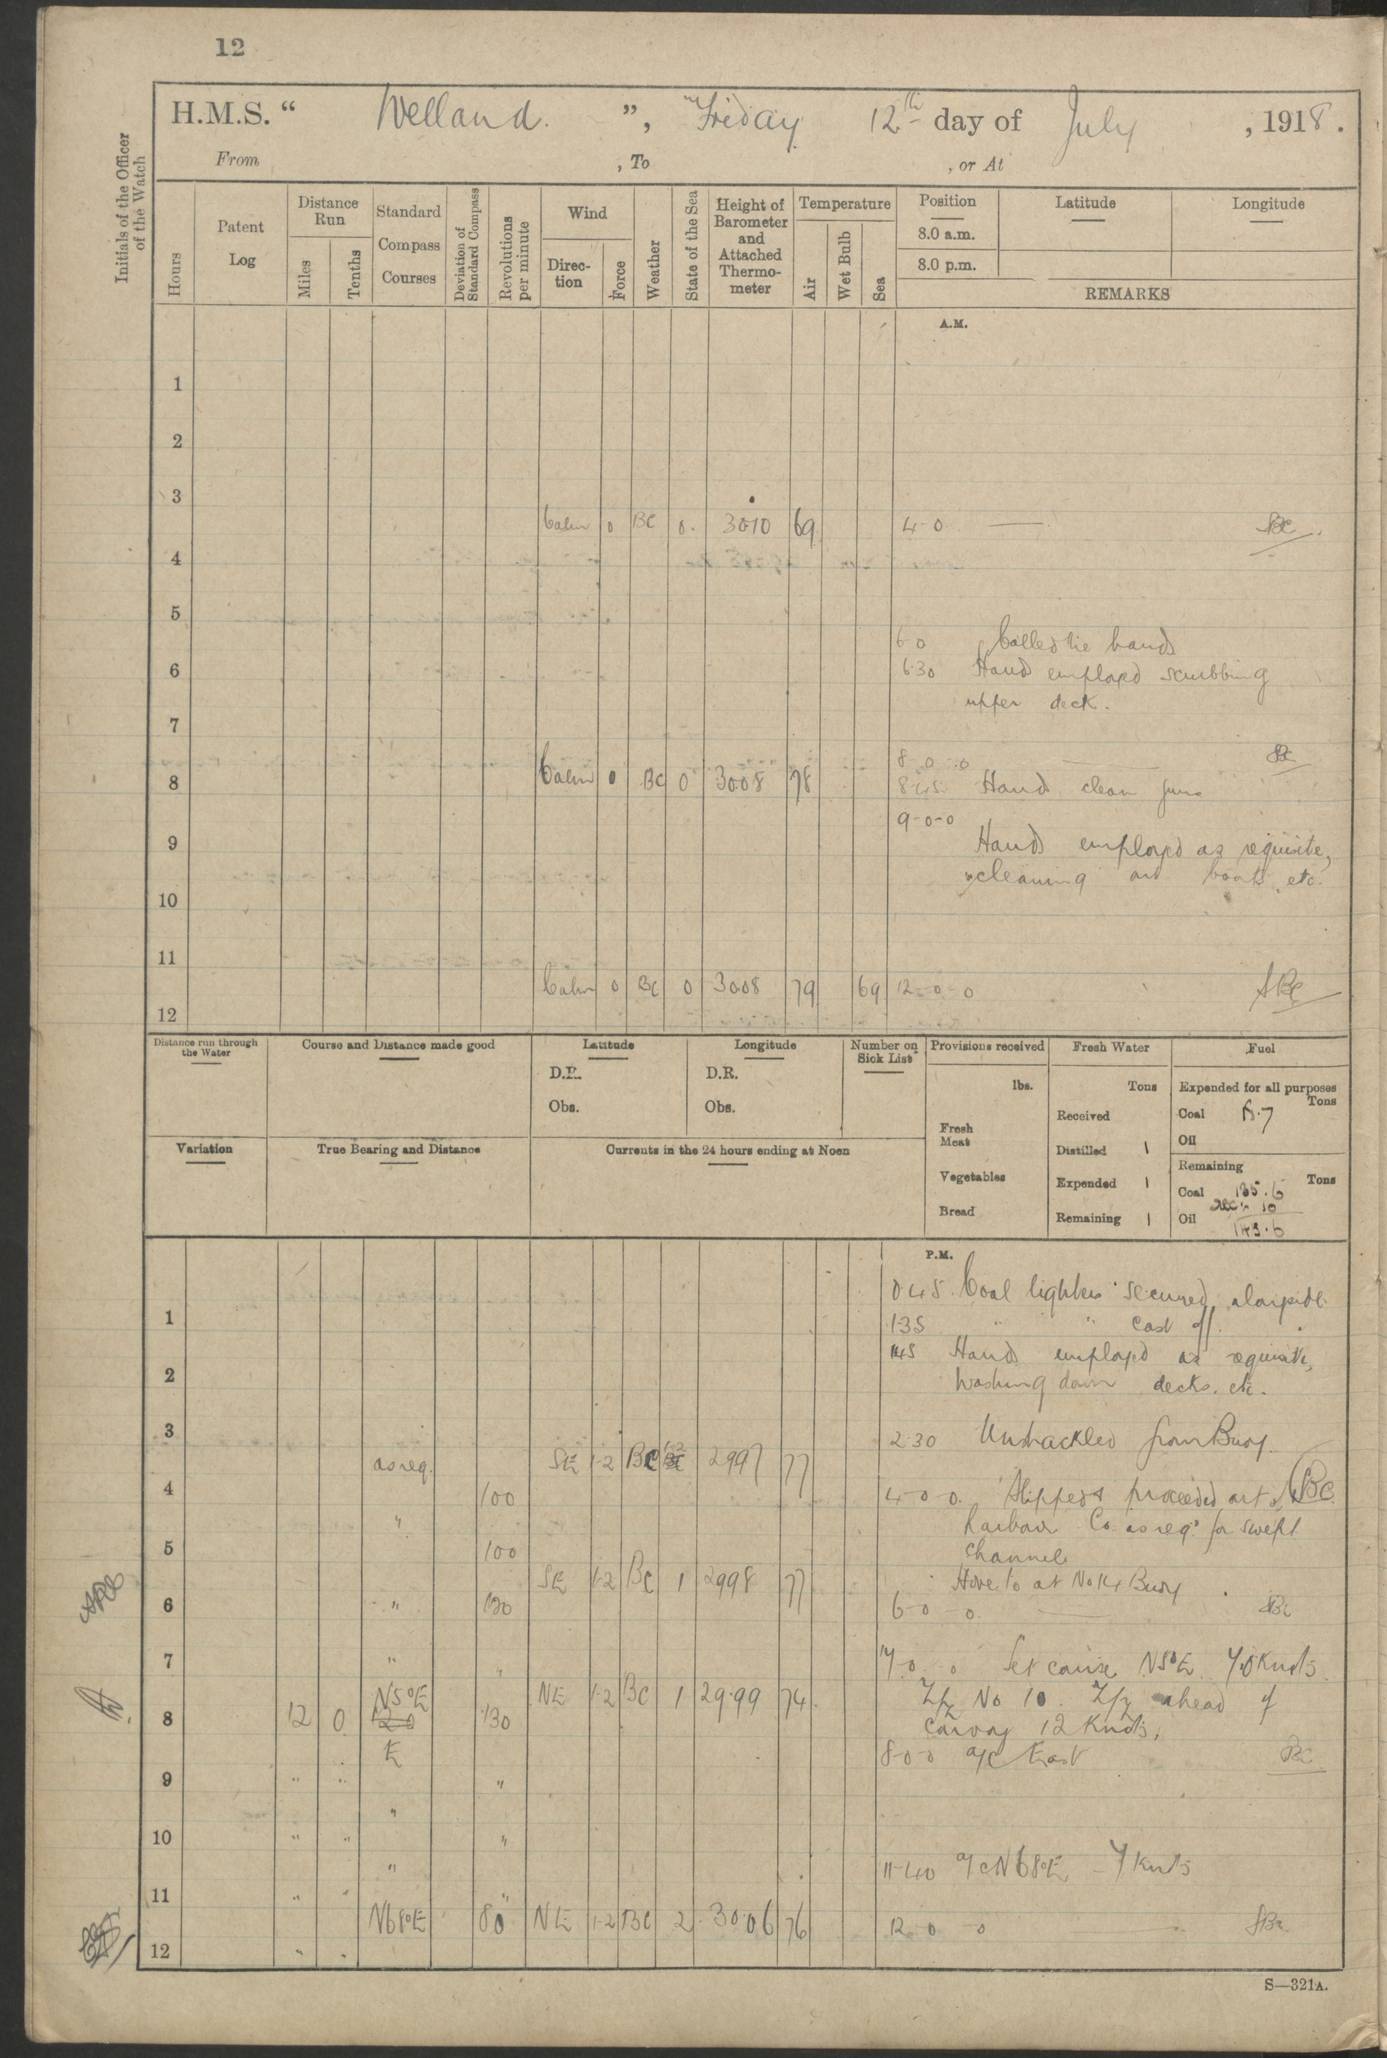 12
H.M.S. “ Welland. ”, Friday 12th day of July , 1918.
From , To , or At
Initials of the Officer of the Watch
Hours
Patent Log
Distance Run
Miles
Tenths
Standard Compass Courses
Deviation of Standard Compass
Revolutions per minute
Wind
Direc-tion
Force
Weather
State of the Sea
Height of Barometer and Attached Thermo-meter
Temperature
Air
Wet Bulb
Sea
Position
8.0 a.m.
8.0 p.m.
Latitude
Longitude
REMARKS
A.M.
1
2
3
Calm 0 BC 0. 3010 69 4-0
4
5
6 0 Called the hands
6 6.30 Hands employed scrubbing
upper deck.
7
8 0 0
8 Calm 0 BC 0 3008 78 8.45 Hands clean guns
9-0-0
9 Hands employed as requisite,
cleaning out boats, etc.
10
11
Calm 0 BC 0 3008 79 69 12-0-0
12
Distance run through the Water
Course and Distance made good
Latitude
D.R.
Obs.
Longitude
D.R.
Obs.
Number on Sick List
Provisions received
lbs.
Fresh Meat
Vegetables
Bread
Fresh Water
Tons
Received
Distilled 1
Expended 1
Remaining 1
Fuel
Expended for all purposes
Tons
Coal
Oil
Remaining
Tons
Coal 135.6
Oil
10
Variation
True Bearing and Distance
Currents in the 24 hours ending at Noon
P.M.
0 45. Coal lighter secured alongside.
1 1.35 " " cast off.
1.45 Hands employed as requisite,
2 washing down decks. etc.
3 2.30 Unshackled from Buoy.
as req. SE 1-2 BC 2997 77
4 100 4-0-0. Slipped & proceeded out of
" harbour Co. as req. for swept
5 100 channel
SE 1-2 BC 1 2998 77 Hove to at No 14 Buoy
6 " 120 6-0-0.
7 " " 7.0.0 Set course N5°E. 7.0 Knots.
N5°E NE 1-2 BC 1 29.99 74 Z/z No 10. Z/z ahead of
8 12 0 130 convoy 12 Knots.
E 8-0-0 a/c East
9 " " "
"
10 " " "
" 11-40 a/c N68°E - 7 Knots
11 " " "
N68°E 80 NE 1-2 BC 2 30.06 76 12-0-0
12 " "
S—321A.